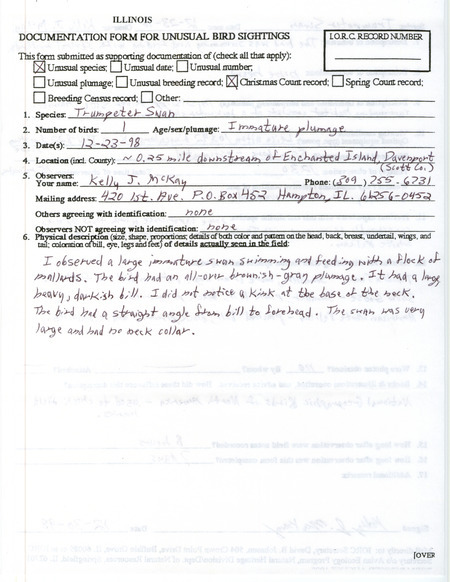 ILLINOIS
DOCUMENTATION FORM FOR UNUSUAL BIRD SIGHTINGS
I.O.R.C. RECORD NUMBER
This form submitted as supporting documentation of (check all that apply):
Unusual species; Unusual date; Unusual number;
Unusual plumage; Unusual breeding record; Christmas Count record; Spring Count record;
Breeding Census record; Other:
1. Species: Trumpeter Swan
2. Number of birds: 1 Age/sex/plumage: Immature plumage
3. Date(s): 12-23-98
4. Location (incl. County): ~ 0.25 mile downstream of Enchanted Island, Davenport
(Scott Co.)
5. Observers:
Your name: Kelly J. McKay Phone: (309) 755-6731
Mailing address: 420 1st. Ave. P.O. Box 452 Hampton, IL. 61256-0452
Others agreeing with identification: none
Observers NOT agreeing with identification: none
6. Physical description (size, shape, proportions; details of both color and pattern on the head, back, breast, undertail, wings, and
tail; coloration of bill, eye, legs and feet) of details actually seen in the field:
I observed a large immature swan swimming and feeding with a flock of
mallards. The bird had an all-over brownish-gray plumage. It had a long
heavy, darkish bill. I did not notice a kink at the base of the neck.
The bird had a straight angle from bill to forehead. The swan was very
large and had no neck collar.
[OVER